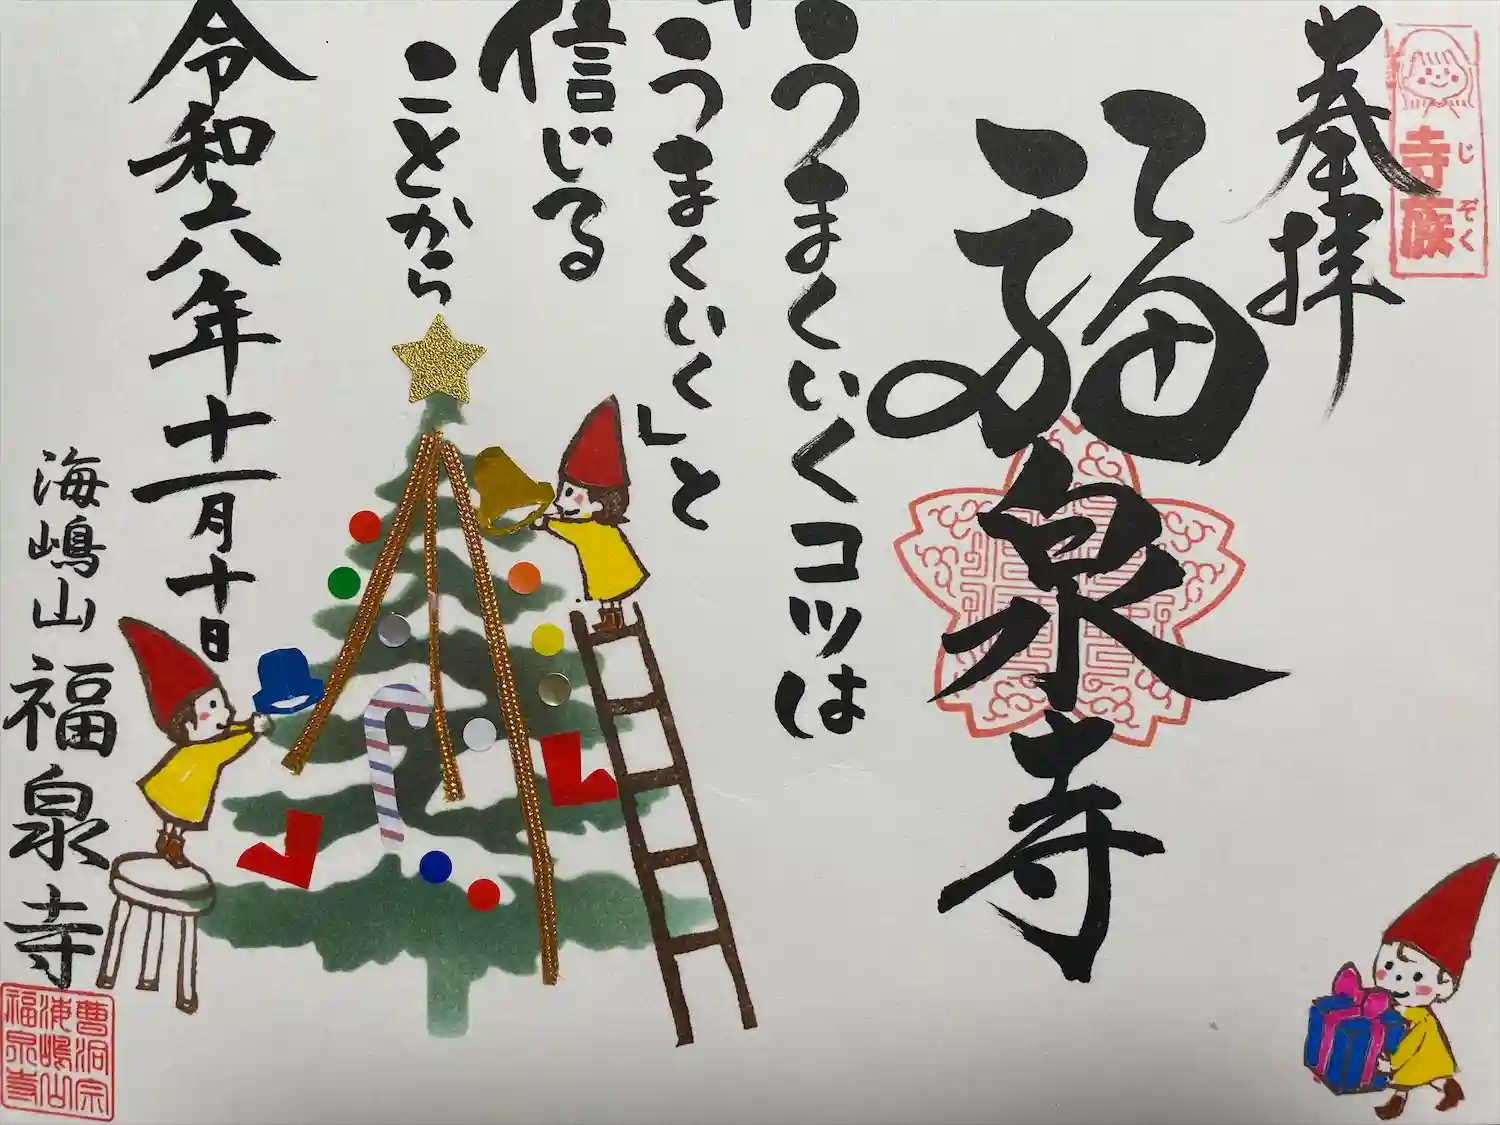 奉拝
寺族
じぞく
福泉寺
うまくいくコツは
「うまくいく」と
信じる
ことから
令和六年十一月十日
海嶋山福泉寺
曹洞宗
海嶋山
福泉寺